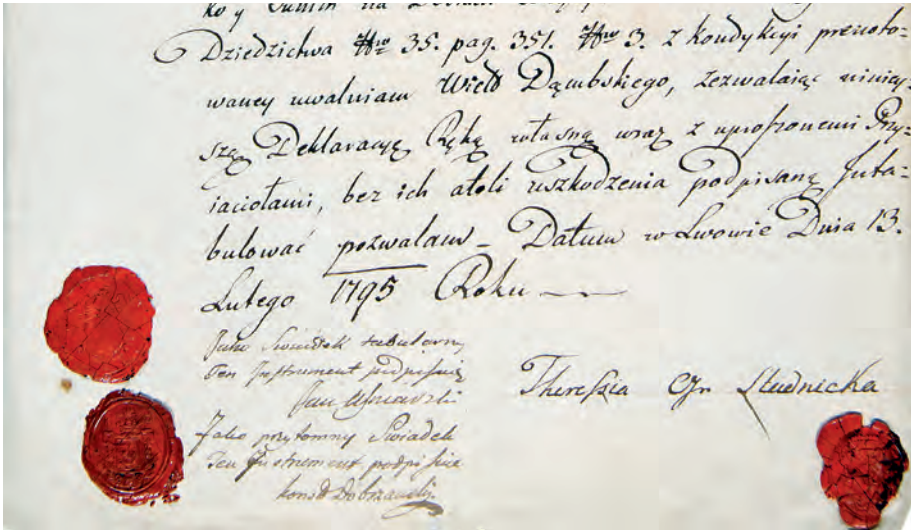 Dziedzictwa Nro 35. pag. 351. Nro 3. z Kondykcyi prenoto=
waney uwalniam Wielo Dąmbskiego, zezwalaiąc niniey=
szą Deklaracyę Ręką własną wraz z uproszonemi Przy=
iaciołami, bez ich atoli uszkodzenia podpisaną Inta=
bulować pozwalam – Datum w Lwowie Dnia 13.
Lutego 1795 Roku —
Jako Swiadek tabularny
Ten Instrument podpisuię
Jan
Jako przytomny Swiadek
Ten Instrument podpisuie
Dobrzanski
Theressia Gr Studnicka